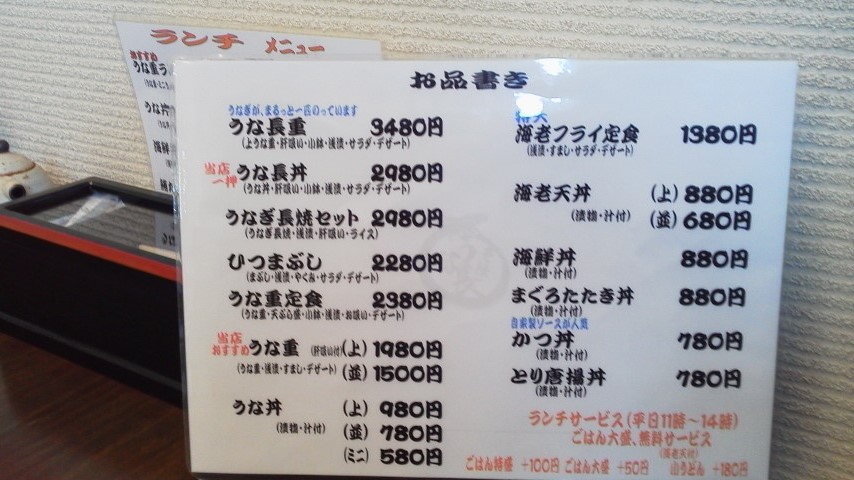 ランチ メニュー
おすすめ
うな重
うな丼
海鮮
お品書き
うなぎが、まるっと一匹のっています
うな長重 3480円
(上うな重・肝吸い・小鉢・浅漬・サラダ・デザート)
当店一押 うな長丼 2980円
(うな丼・肝吸い・小鉢・浅漬・サラダ・デザート)
うなぎ長焼セット 2980円
(うなぎ長焼・浅漬・肝吸い・ライス)
ひつまぶし 2280円
(まぶし・浅漬・やくみ・サラダ・デザート)
うな重定食 2380円
(うな重・天ぷら盛・小鉢・浅漬・お吸い・デザート)
当店おすすめ うな重 (肝吸い付) (上) 1980円
(うな重・浅漬・すまし・デザート) (並) 1500円
うな丼 (上) 980円
(漬物・汁付) (並) 780円
(ミニ) 580円
特大
海老フライ定食 1380円
(浅漬・すまし・サラダ・デザート)
海老天丼 (上) 880円
(漬物・汁付) (並) 680円
海鮮丼 880円
(漬物・汁付)
まぐろたたき丼 880円
(漬物・汁付)
自家製ソースが人気
かつ丼 780円
(漬物・汁付)
とり唐揚丼 780円
(漬物・汁付)
ランチサービス(平日11時〜14時)
ごはん大盛、無料サービス
(海老天付)
ごはん特盛 +100円 ごはん大盛 +50円 小うどん +180円